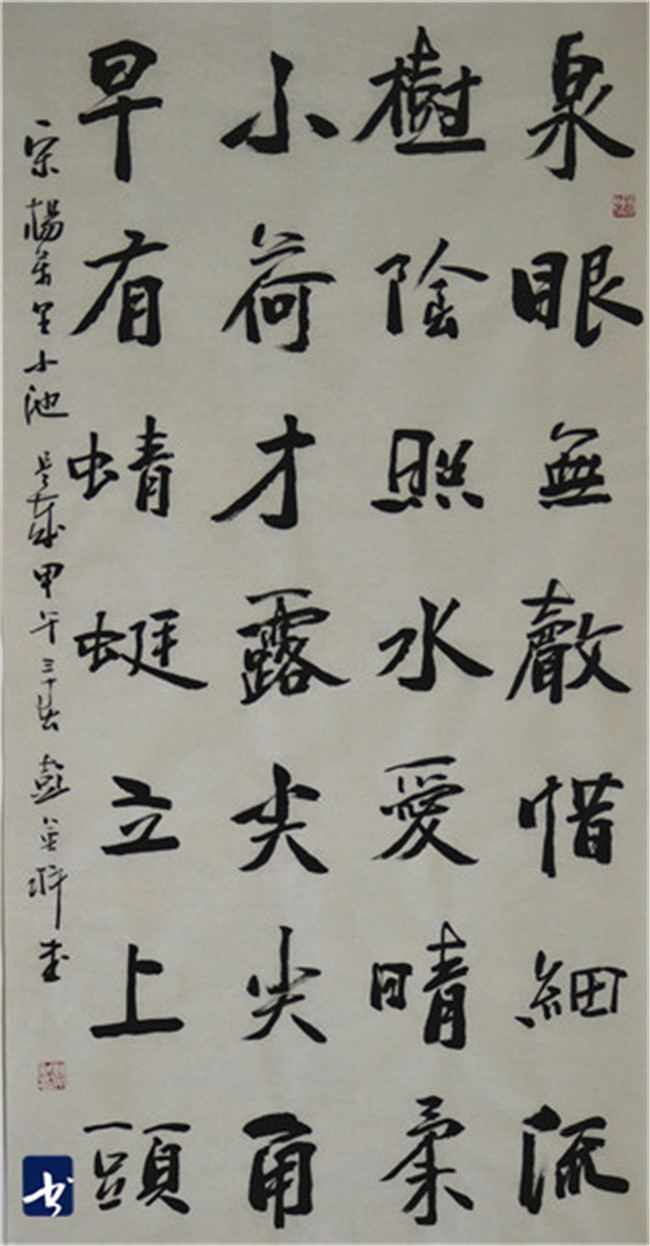 泉眼無聲惜細流
樹陰照水愛晴柔
小荷才露尖尖角
早有蜻蜓立上頭
宋楊萬里小池 甲午 書
书